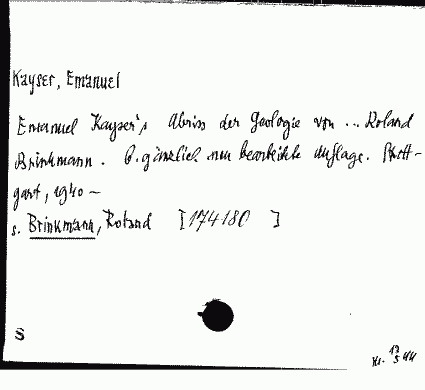 Kayser, Emanuel
Emanuel Kayser's Abriss der Geologie von ... Roland
Brinkmann. 6. gänzlich neu bearbeitete Auflage. Stutt-
gart, 1940 –
s. Brinkmann, Roland [174180 ]
S